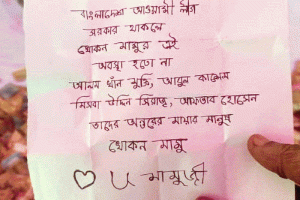 বাংলাদেশ আওয়ামী লীগ
সরকার থাকলে
খোকন মামুর এই
অবস্থা হতো না
আলম খাঁন মুক্তি, আবুল কালেম
মিসবা উদ্দিন সিরাজ, আফতাব হোসেন
তাদের অন্তরের মায়ার মানুষ
খোকন মামু
♡ U মামুজী